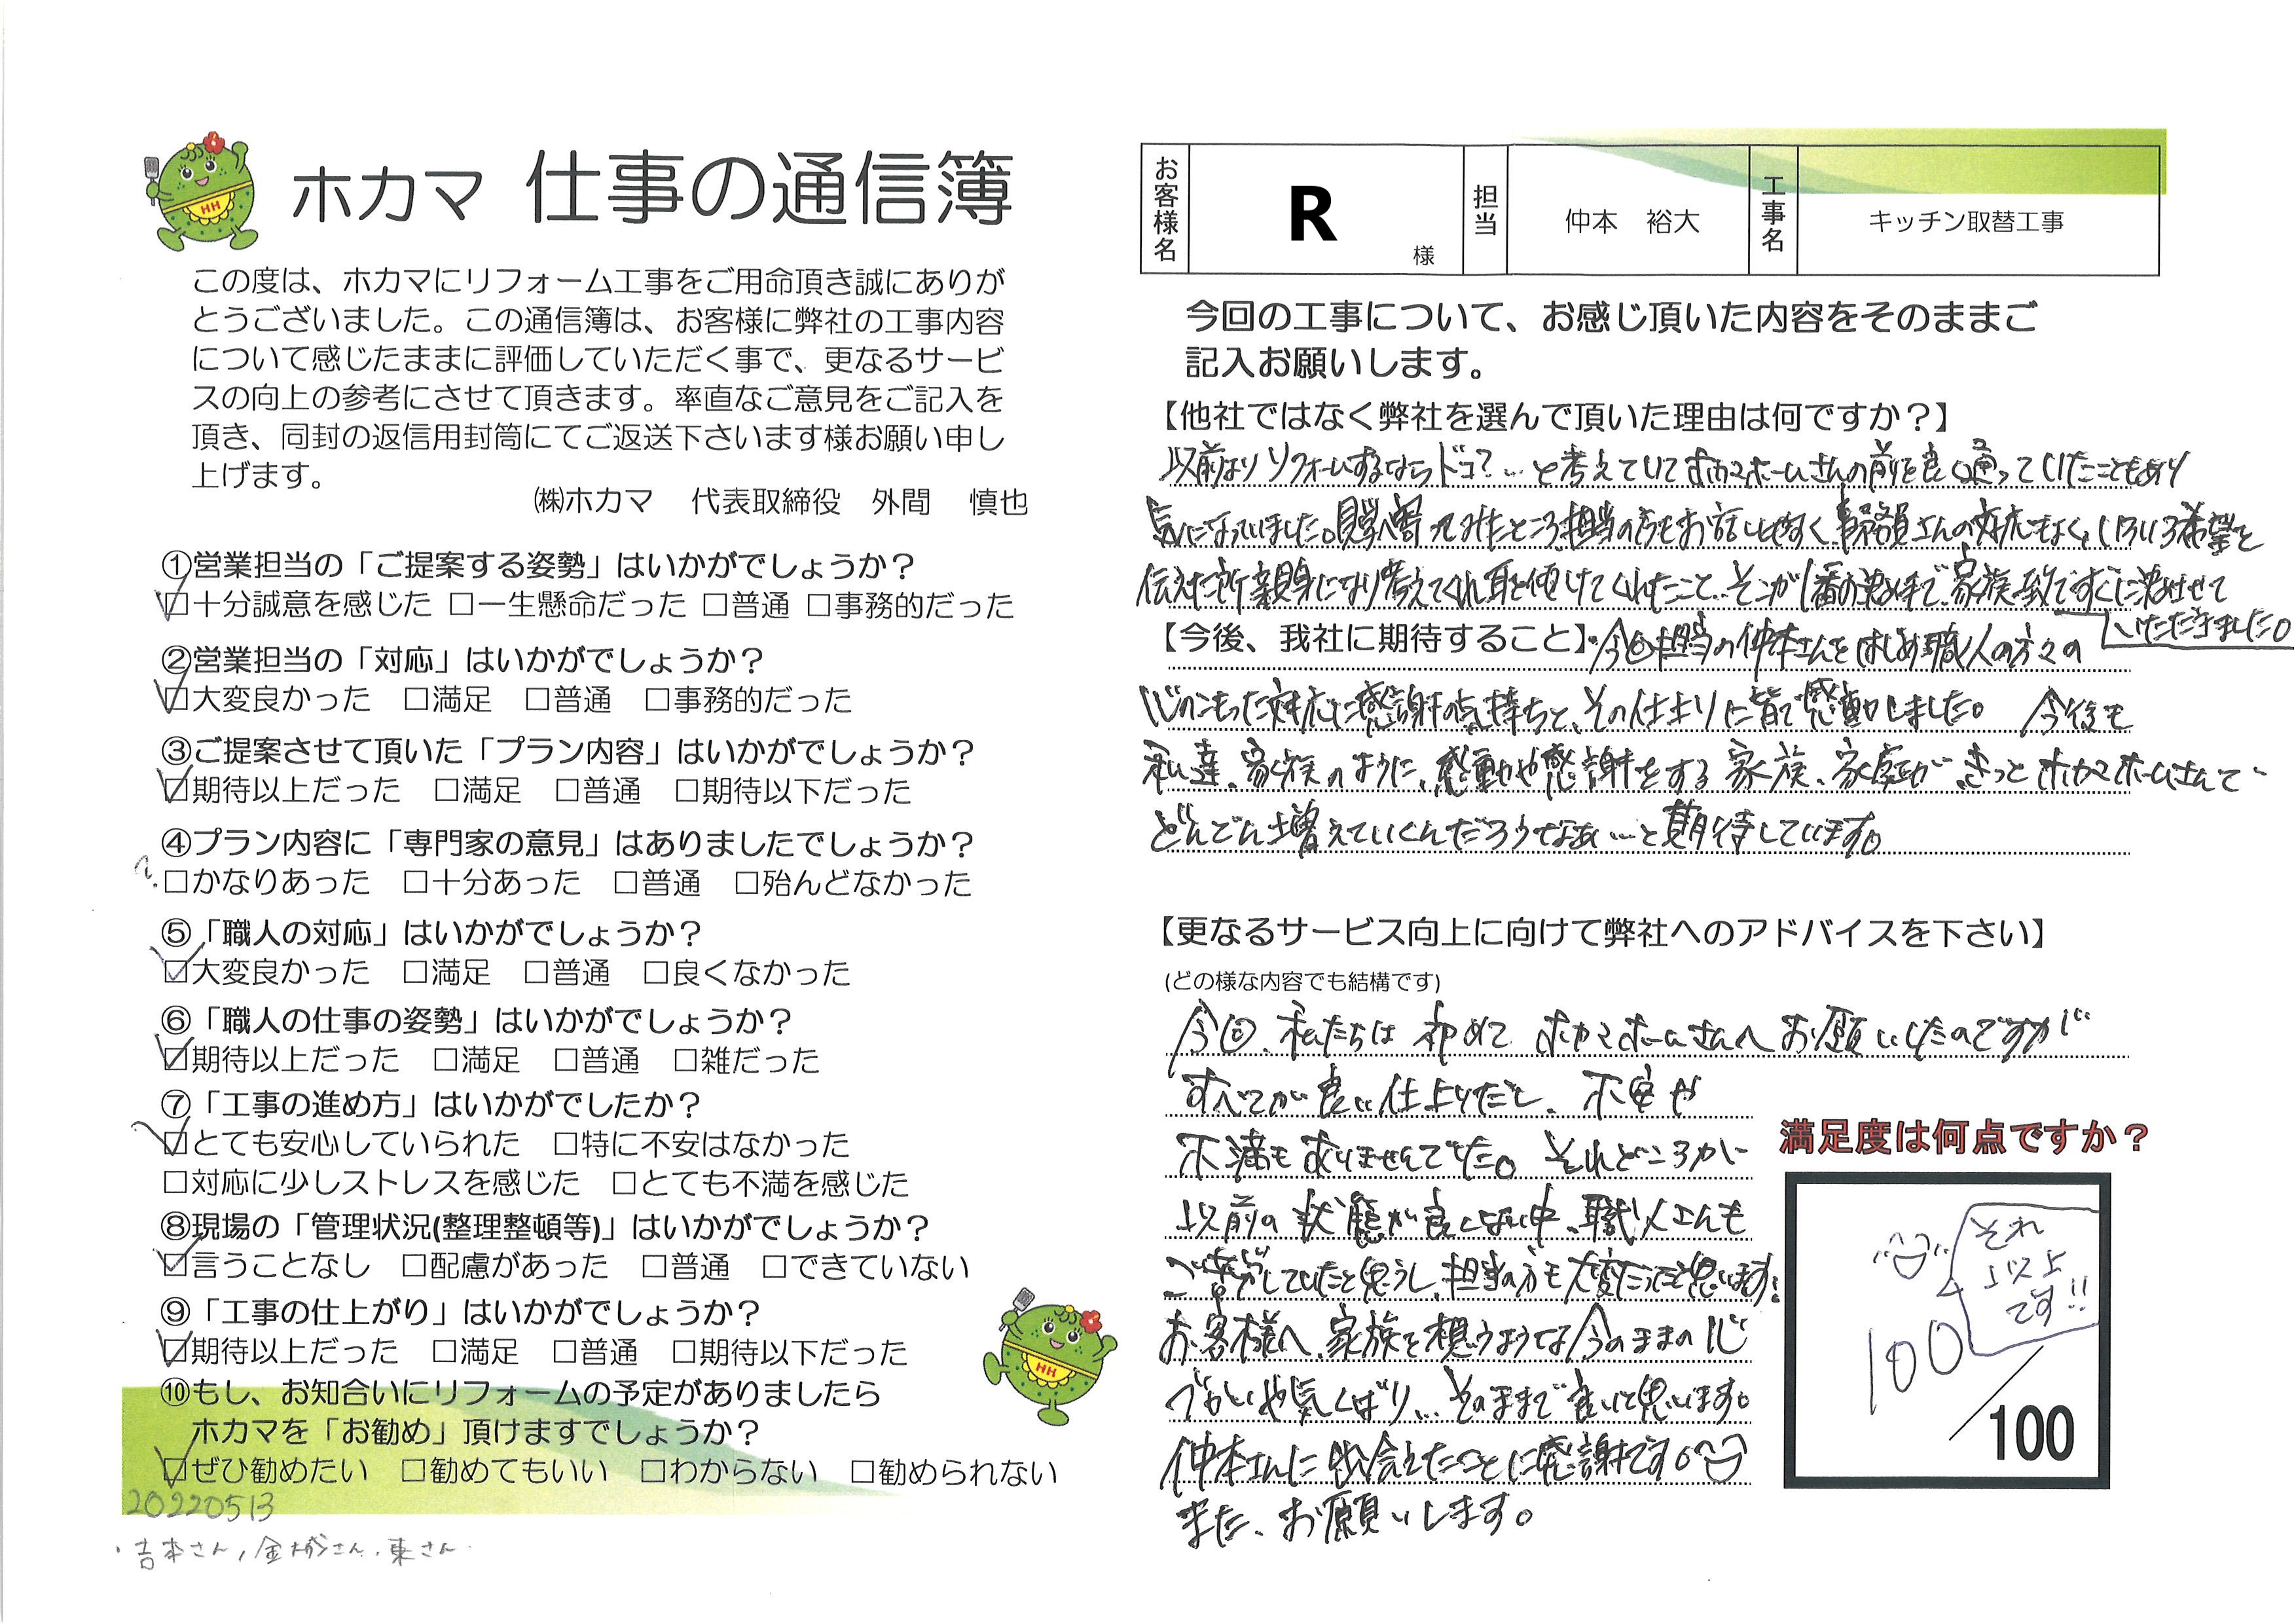 ホカマ 仕事の通信簿
この度は、ホカマにリフォーム工事をご用命頂き誠にありが
とうございました。この通信簿は、お客様に弊社の工事内容
について感じたままに評価していただく事で、更なるサービ
スの向上の参考にさせて頂きます。率直なご意見をご記入を
頂き、同封の返信用封筒にてご返送下さいます様お願い申し
上げます。
㈱ホカマ 代表取締役 外間 慎也
①営業担当の「ご提案する姿勢」はいかがでしょうか？
☑十分誠意を感じた □一生懸命だった □普通 □事務的だった
②営業担当の「対応」はいかがでしょうか？
☑大変良かった □満足 □普通 □事務的だった
③ご提案させて頂いた「プラン内容」はいかがでしょうか？
☑期待以上だった □満足 □普通 □期待以下だった
④プラン内容に「専門家の意見」はありましたでしょうか？
□かなりあった □十分あった □普通 □殆んどなかった
⑤「職人の対応」はいかがでしょうか？
☑大変良かった □満足 □普通 □良くなかった
⑥「職人の仕事の姿勢」はいかがでしょうか？
☑期待以上だった □満足 □普通 □雑だった
⑦「工事の進め方」はいかがでしたか？
☑とても安心していられた □特に不安はなかった
□対応に少しストレスを感じた □とても不満を感じた
⑧現場の「管理状況(整理整頓等)」はいかがでしょうか？
☑言うことなし □配慮があった □普通 □できていない
⑨「工事の仕上がり」はいかがでしょうか？
☑期待以上だった □満足 □普通 □期待以下だった
⑩もし、お知合いにリフォームの予定がありましたら
ホカマを「お勧め」頂けますでしょうか？
☑ぜひ勧めたい □勧めてもいい □わからない □勧められない
20220513
・吉本さん，金城さん，東さん
お客様名 R 様 担当 仲本 裕大 工事名 キッチン取替工事
今回の工事について、お感じ頂いた内容をそのままご
記入お願いします。
【他社ではなく弊社を選んで頂いた理由は何ですか？】
以前よりリフォームするならドコ?…と考えていてホカマホームさんの前を良く通っていたこともあり
気になっていました。見学へ寄ってみたところ、担当の方もお話しやすく、事務員さんの対応もよく、いろいろ希望を
伝えた所、親身になり考えてくれ耳を傾けてくれたこと、そこが1番の決め手で、家族一致ですぐに決めさせて
いただきました。
【今後、我社に期待すること】今回担当の仲本さんをはじめ職人の方々の
心のこもった対応に感謝の気持ちと、その仕上りに皆で感動しました。 今後も
私達、家族のように、感動や感謝をする家族、家庭が、きっとホカマホームさんで
どんどん増えていくんだろうなぁ…と期待しています。
【更なるサービス向上に向けて弊社へのアドバイスを下さい】
(どの様な内容でも結構です)
今回、私たちは初めてホカマホームさんへお願いしたのですが
すべてが良い仕上りだし、不安や
不満もありませんでした。それどころか
以前の状態が良くない中、職人さんも
ご苦労していたと思うし、担当の方も大変だったと思います!
お客様へ、家族を想うような今のままの心
づかいや気くばり…そのままで良いと思います。
仲本さんに出会えたことに感謝です。
また、お願いします。
満足度は何点ですか？
それ
以上
です!!
100
／100
HH
HH